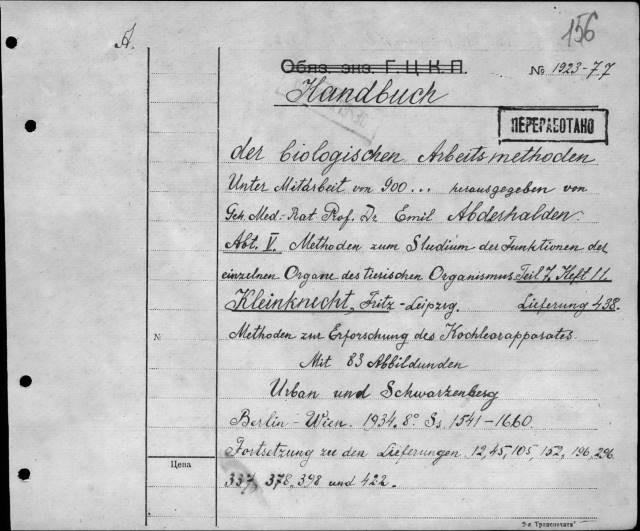 156
A.
Обяз. экз. Г.Ц.К.П.
№ 1923-77
Handbuch
ПЕРЕРАБОТАНО
der biologischen Arbeitsmethoden
Unter Mitarbeit von 900... herausgegeben von
Geh. Med.-Rat Prof. Dr Emil Abderhalden.
Abt. V. Methoden zum Studium der Funktionen der
einzelnen Organe des tierischen Organismus Teil 7, Heft 11
Kleinknecht, Fritz-Leipzig. Lieferung 438.
№
Methoden zur Erforschung des Kochlearapparates.
Mit 83 Abbildunden
Urban und Schwarzenberg
Berlin-Wien. 1934. 8° Ss. 1541-1660.
Цена
Fortsetzung zu den Lieferungen 12, 45, 105, 152, 196, 296
337, 378, 398 und 422.